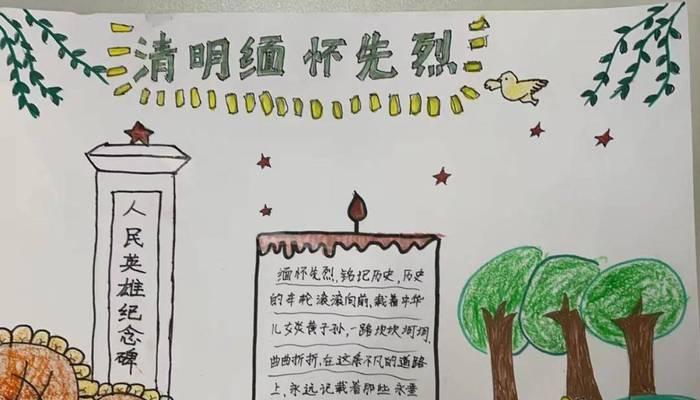 清明缅怀先烈
人民英雄纪念碑
缅怀先烈,铭记历史,历史
的车轮滚滚向前,载着中华
儿女炎黄子孙,一路坎坎坷坷,
曲曲折折,在这条不凡的道路
上,永远记载着那些永垂